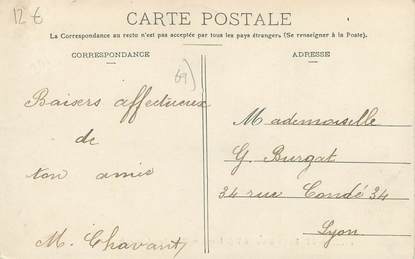 12 €
CARTE POSTALE
La Correspondance au recto n'est pas acceptée par tous les pays étrangers. (Se renseigner à la Poste).
CORRESPONDANCE
ADRESSE
69)
Baisers affectueux
de
ton amie
M. Chavant
Mademoiselle
G. Burgat
34 rue Condé 34
Lyon